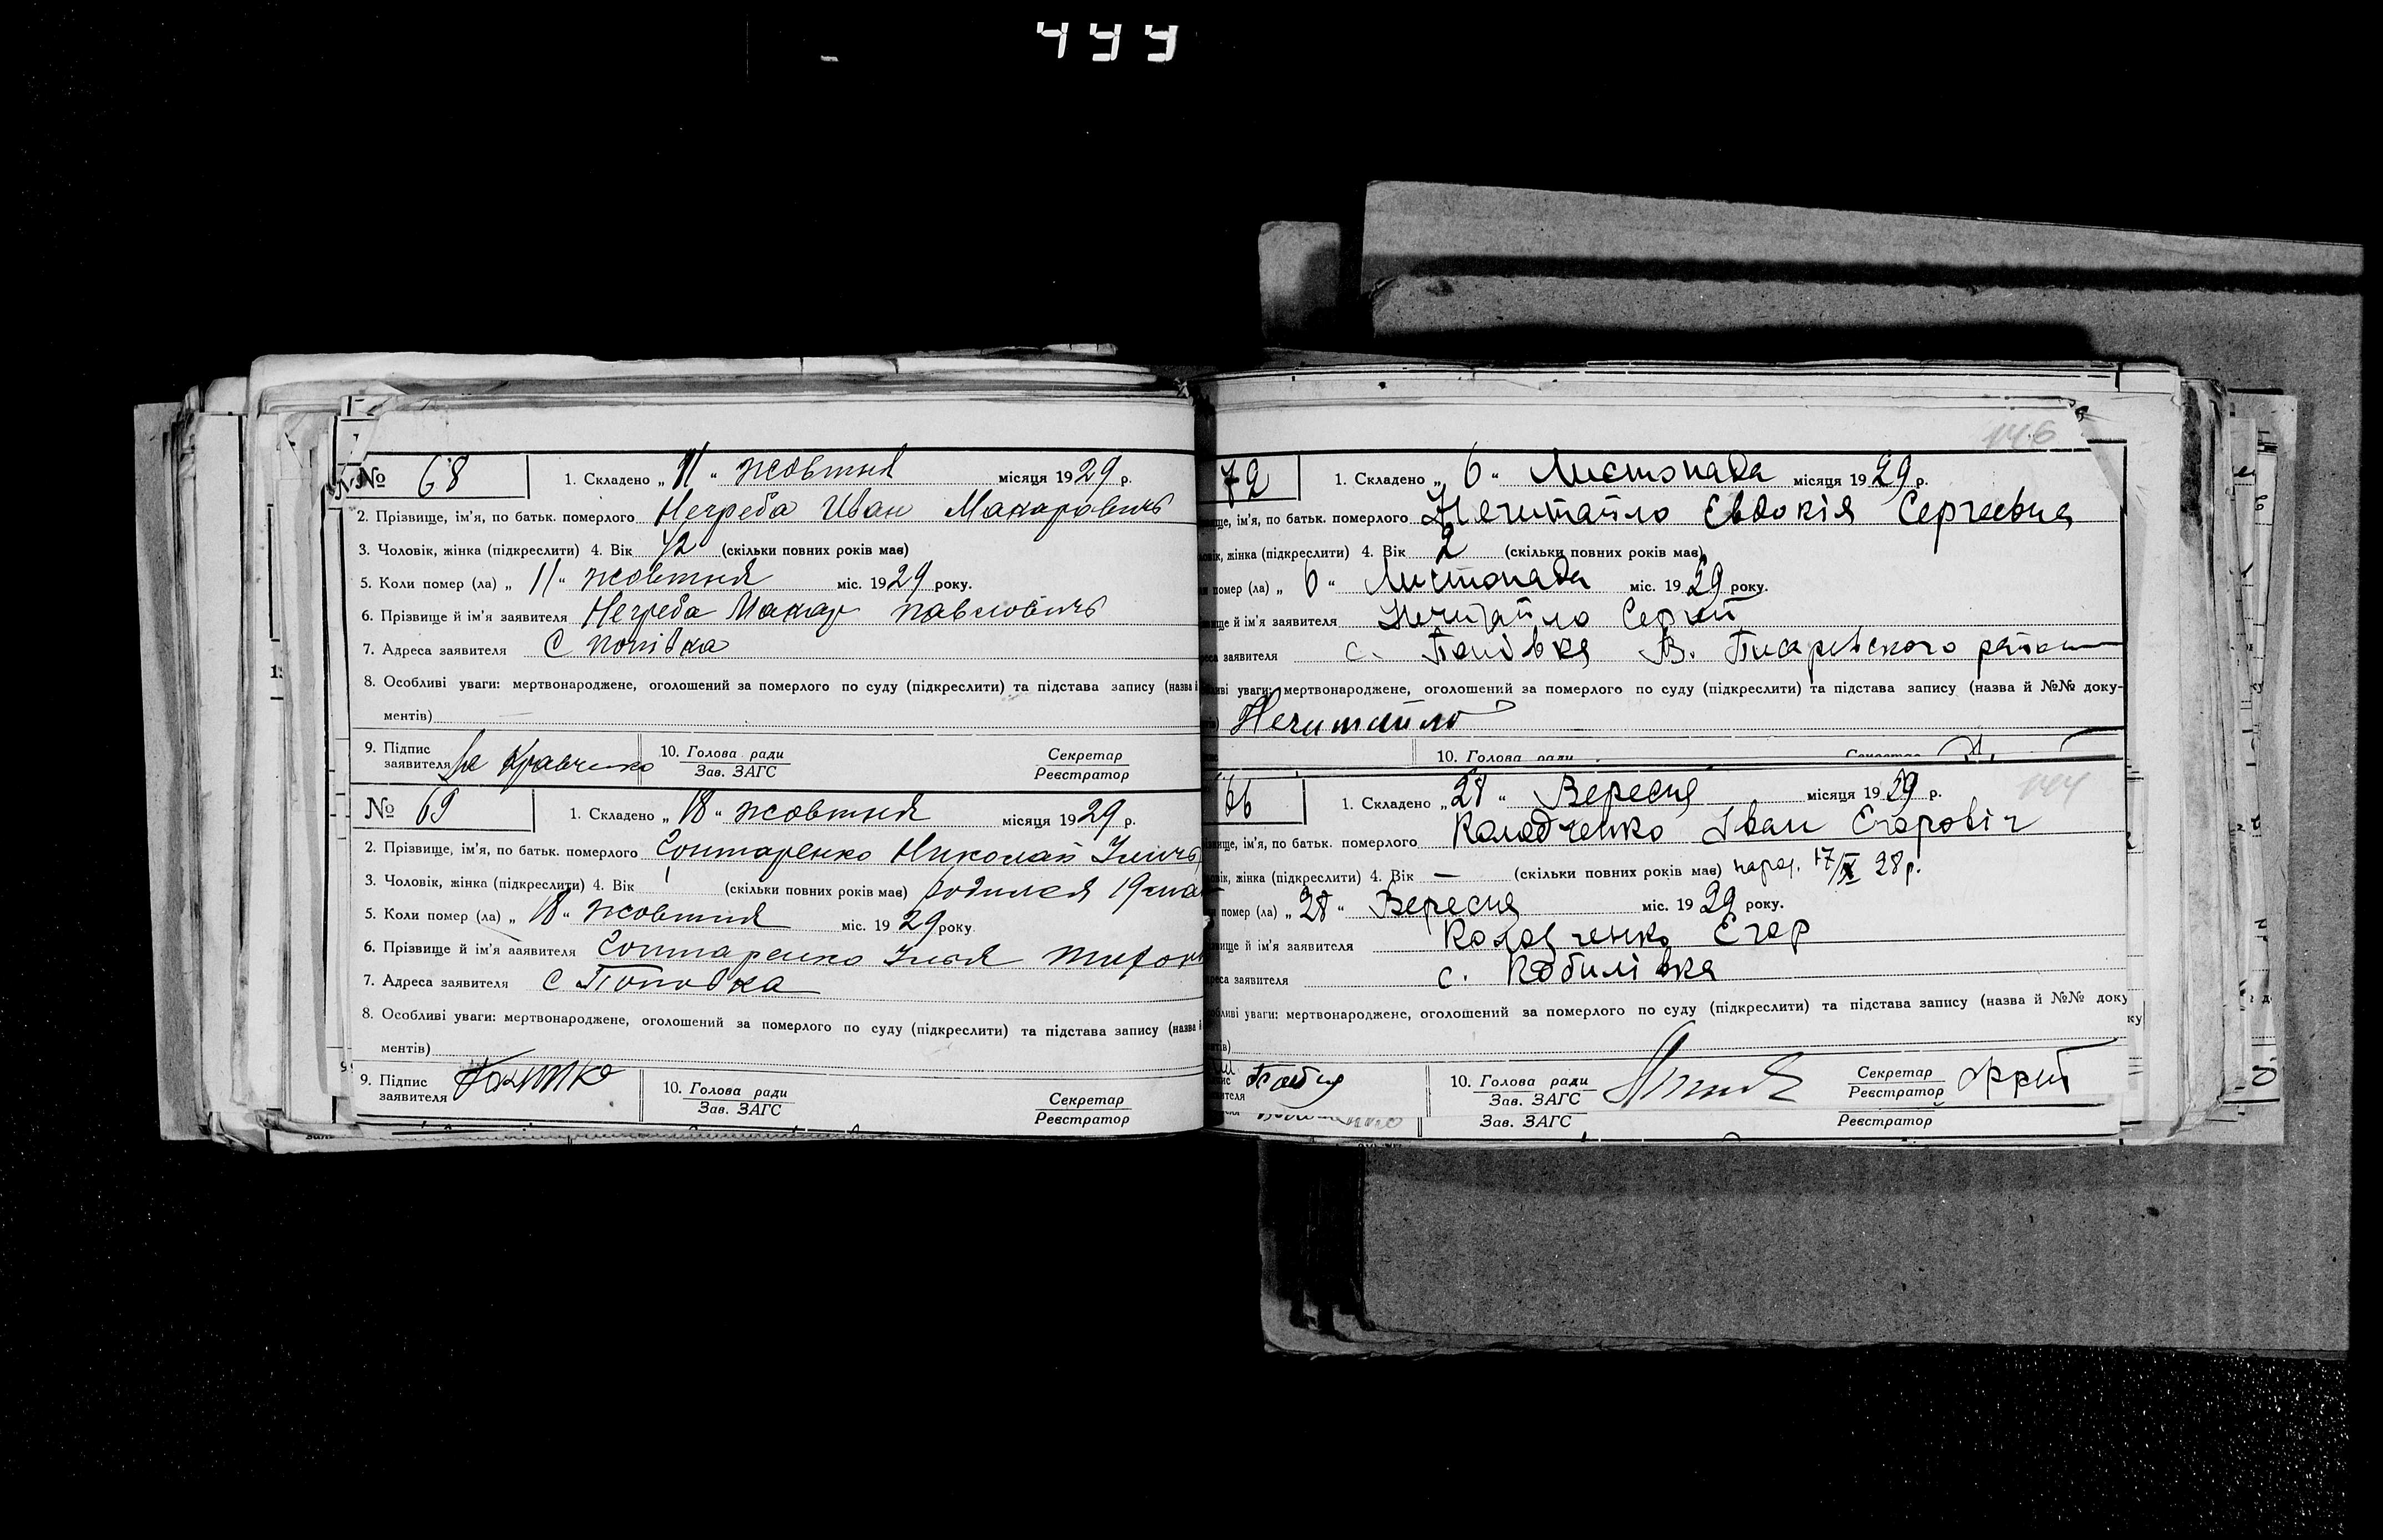 № 68 1. Складено „ 11 “ жовтня місяця 1929 р.
2. Прізвище, ім'я, по батьк. померлого Негреба Иван Макаровичъ
3. Чоловік, жінка (підкреслити) 4. Вік 42 (скільки повних років має)
5. Коли помер (ла) „ 11 “ жовтня міс. 1929 року.
6. Прізвище й ім'я заявителя Негреба Макар павловичъ
7. Адреса заявителя С попівка
8. Особливі уваги: мертвонароджене, оголошений за померлого по суду (підкреслити) та підстава запису (назва й
ментів)
9. Підпис заявителя Кравченко 10. Голова ради Зав. ЗАГС Секретар Реєстратор
№ 69 1. Складено „ 18 “ жовтня місяця 1929 р.
2. Прізвище, ім'я, по батьк. померлого Гонтаренко Николай Ильичъ
3. Чоловік, жінка (підкреслити) 4. Вік (скільки повних років має) родился 19 мая
5. Коли помер (ла) „ 18 “ жовтня міс. 1929 року.
6. Прізвище й ім'я заявителя Гонтаренко Илья
7. Адреса заявителя С Поповка
8. Особливі уваги: мертвонароджене, оголошений за померлого по суду (підкреслити) та підстава запису (назва й
ментів)
9. Підпис заявителя 10. Голова ради Зав. ЗАГС Секретар Реєстратор
146
72 1. Складено „ 6 “ Листопада місяця 1929 р.
ім'я, по батьк. померлого Нечитайло Євдокія Сергеевна
жінка (підкреслити) 4. Вік 2 (скільки повних років має)
помер (ла) „ 6 “ Листопада міс. 1929 року.
й ім'я заявителя Нечитайло Сергій
заявителя с. Попівка В. Писарівского району
уваги: мертвонароджене, оголошений за померлого по суду (підкреслити) та підстава запису (назва й №№ доку-
Нечитайло
10. Голова ради Секретар
66 1. Складено „ 28 “ Вересня місяця 1929 р. 144
ім'я, по батьк. померлого Колодченко Іван Егоровіч
жінка (підкреслити) 4. Вік — (скільки повних років має) народ. 17/X 28 р.
помер (ла) „ 28 “ Вересня міс. 1929 року.
й ім'я заявителя Колодченко Егор
заявителя с. Кобилівка
уваги: мертвонароджене, оголошений за померлого по суду (підкреслити) та підстава запису (назва й №№ доку
10. Голова ради Зав. ЗАГС Секретар Реєстратор
Зав. ЗАГС Реєстратор